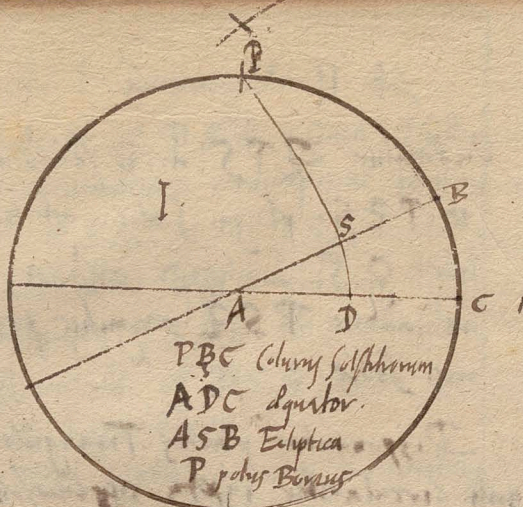 P
I
B
S
A
D
C
PBC Colurus Solstitiorum
ADC Æquator.
ASB Ecliptica
P polus Boreus